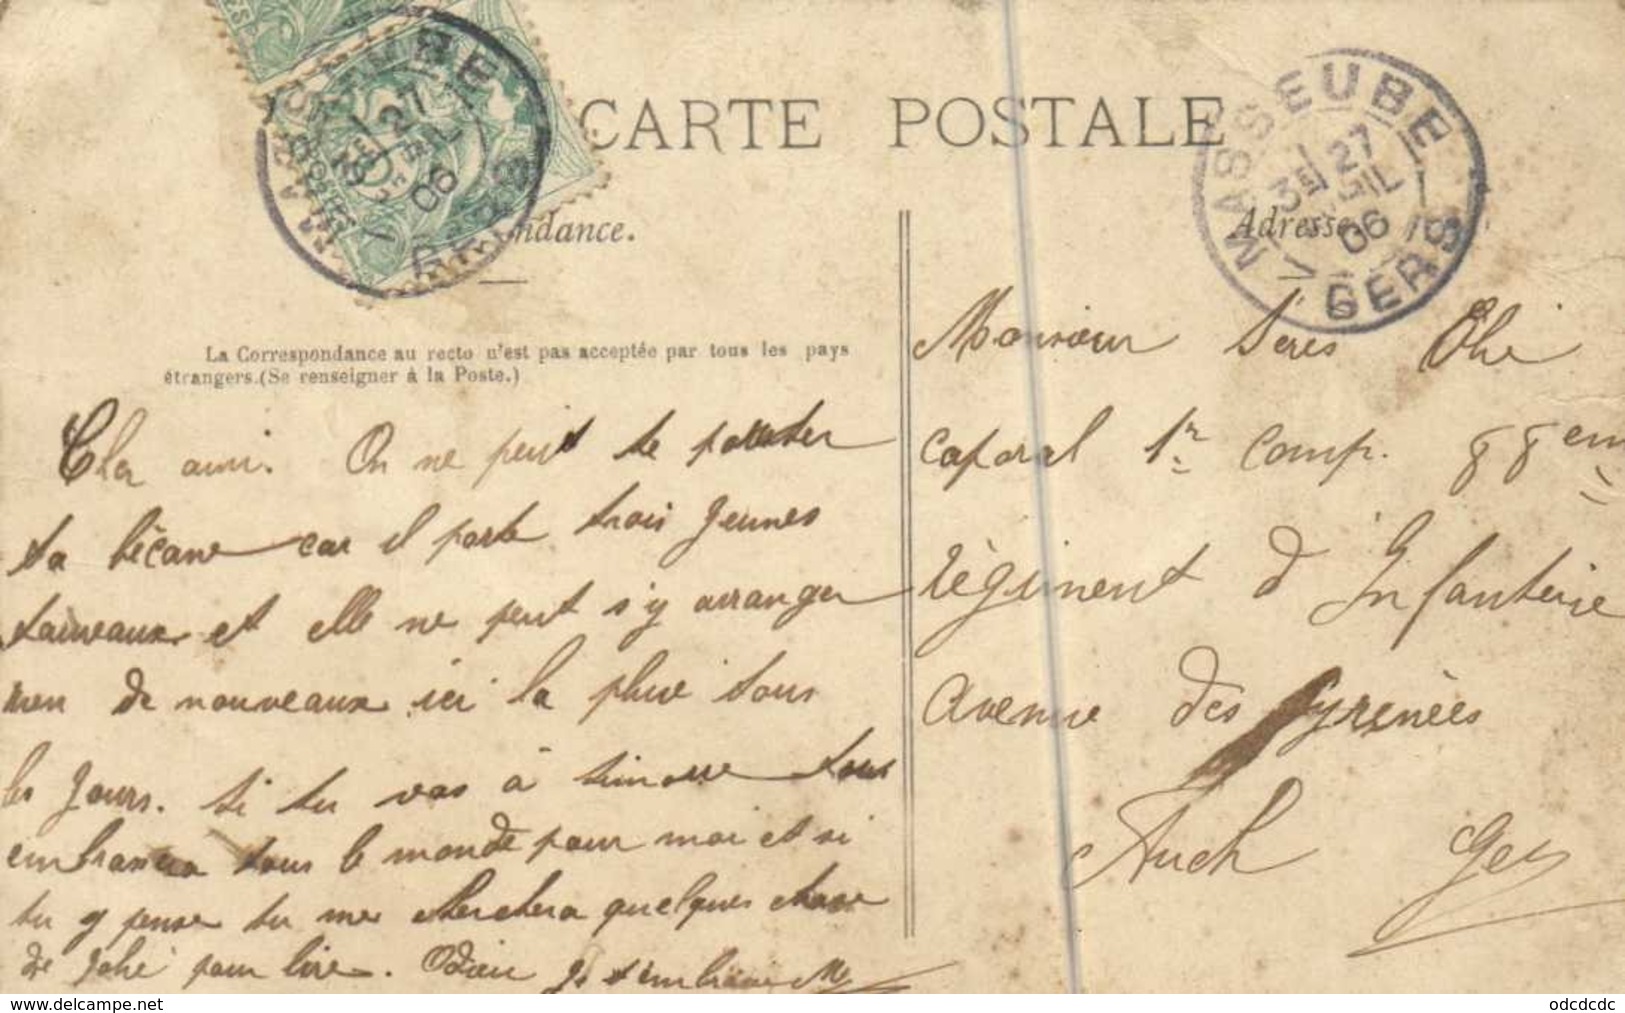 CARTE POSTALE
MASSEUBE
27
06
GERS
MASSEUBE
3E 27
06
GERS
ndance.
Adresse
La Correspondance au recto n'est pas acceptée par tous les pays
étrangers.(Se renseigner à la Poste.)
Cher ami. On ne peut te porter
ta bécane car il porte trois jeunes
taureaux et elle ne peut s'y arranger
rien de nouveaux ici la pluie tous
les jours. si tu vas à Simorre tous
embrassera tous le monde pour moi et si
tu y pense tu me cherchera quelques chose
de joli pour lire. Odieu je t'embrasse
Monsieur Séres
caporal 1r comp. 88em
régiment d'Infanterie
avenue des Pyrenées
Auch Gers
https://www.delcampe.net
odcdcdc